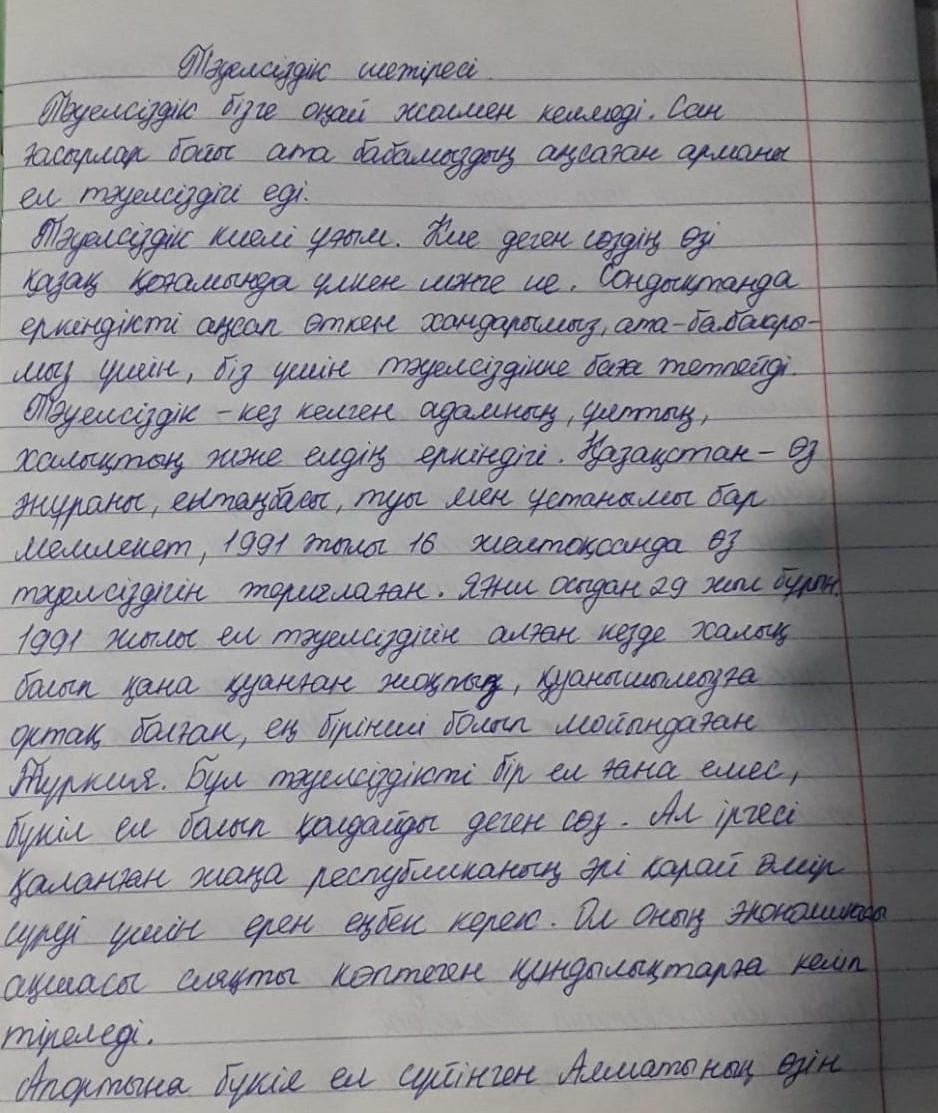 Тәуелсіздік шежіресі.
Тәуелсіздік бізге оңай жолмен келмеді. Сан
ғасырлар бойы ата бабамыздың аңсаған арманы
ел тәуелсіздігі еді.
Тәуелсіздік киелі ұғым. Кие деген сөздің өзі
қазақ қоғамында үлкен мәнге ие. Сондықтанда
еркіндікті аңсап өткен хандарымыз, ата-бабалары-
мыз үшін, біз үшін тәуелсіздікке баға жетпейді.
Тәуелсіздік - кез келген адамның, ұлттың,
халықтың және елдің еркіндігі. Қазақстан - өз
әнұраны, елтаңбасы, туы мен ұстанымы бар
мемлекет, 1991 жылы 16 желтоқсанда өз
тәуелсіздігін жариялаған. Яғни осыдан 29 жыл бұрын.
1991 жылы ел тәуелсіздігін алған кезде халық
болып қана қуанған жоқпыз, қуанышымызға
ортақ болған, ең бірінші болып мойындаған
Түркия. Бұл тәуелсіздікті бір ел ғана емес,
бүкіл ел болып қолдайды деген сөз. Ал іргесі
қаланған жаңа республиканың әрі қарай өмір
сүруі үшін ерен еңбек керек. Ол оның экономикасы
ақшасы сияқты көптеген құндылықтарға келіп
тіреледі.
Апортына бүкіл ел сүйінген Алматының өзін